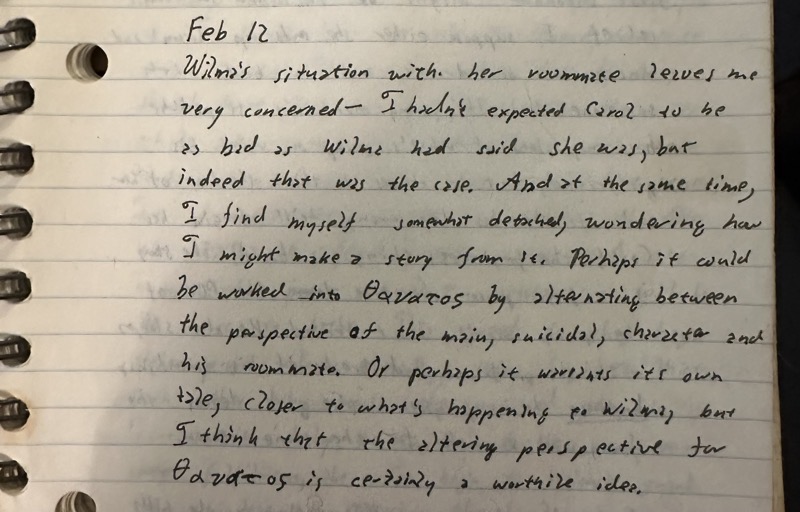 Feb 12
Wilma's situation with her roommate leaves me
very concerned— I hadn't expected Carol to be
as bad as Wilma had said she was, but
indeed that was the case. And at the same time,
I find myself somewhat detached, wondering how
I might make a story from it. Perhaps it could
be worked into θανατος by alternating between
the perspective of the main, suicidal, character and
his roommate. Or perhaps it warrants its own
tale, closer to what's happening to Wilma, but
I think that the altering perspective for
θανατος is certainly a worthile idea.